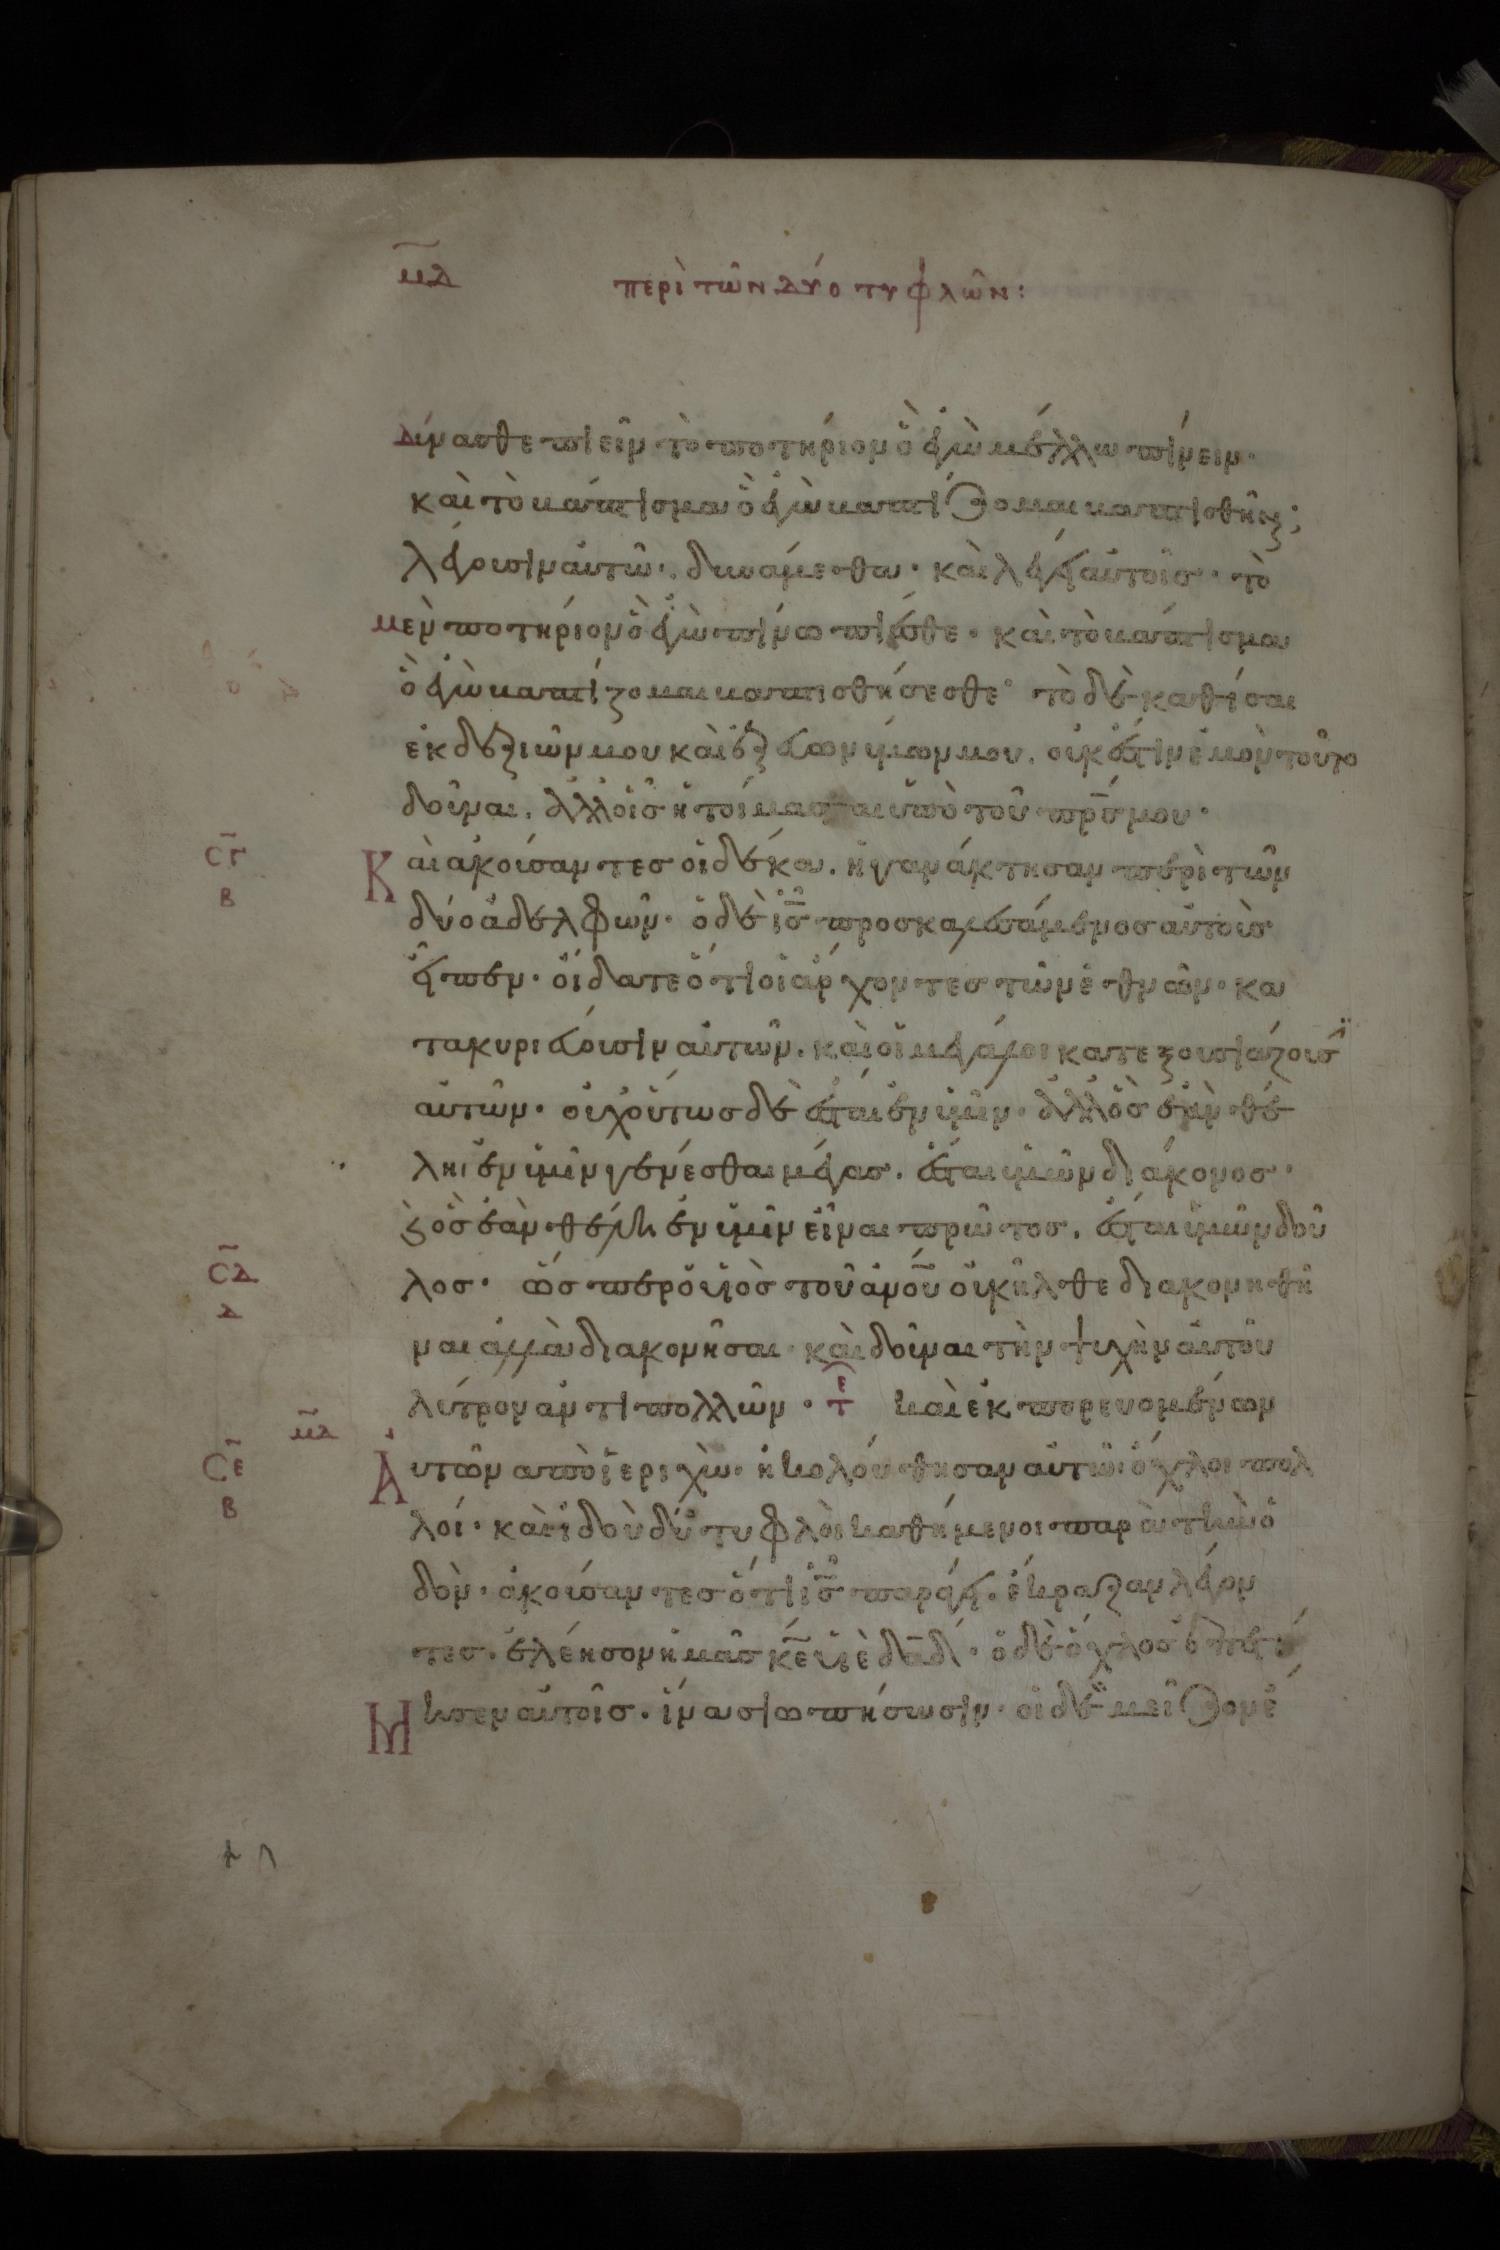 μδ περὶ τῶν δύο τυφλῶν:
δύνασθε πιεῖν τὸ ποτήριον ὃ ἐγὼ μέλλω πίνειν·
καὶ τὸ βάπτισμα ὃ ἐγὼ βαπτίζομαι βαπτισθῆναι;
λέγουσιν αὐτῶ· δυνάμεθα· καὶ λέγει αὐτοῖς· τὸ
μὲν ποτήριον ὃ ἐγὼ πίνω πίεσθε· καὶ τὸ βάπτισμα
ὃ ἐγὼ βαπτίζομαι βαπτισθήσεσθε· τὸ δὲ καθίσαι
ἐκ δεξιῶν μου καὶ ἐξ εὐωνύμων μου, οὐκ ἔστιν ἐμὸν τοῦτο
δοῦναι, ἀλλ' οἷς ἡτοίμασται ὑπὸ τοῦ πρσ μου·
σγ
β
Καὶ ἀκούσαντες οἱ δέκα, ἠγανάκτησαν περὶ τῶν
δύο ἀδελφῶν· ὁ δὲ ις προσκαλεσάμενος αὐτοὺς
εἶπεν· οἴδατε ὅτι οἱ ἄρχοντες τῶν ἐθνῶν· κα
τακυριεύουσιν αὐτῶν, καὶ οἱ μεγάλοι κατεξουσιάζουσιν
αὐτῶν· οὐχ οὕτως δὲ ἔσται ἐν ὑμῖν· ἀλλ' ὃς ἐὰν θέ
ληι ἐν ὑμῖν γενέσθαι μέγας, ἔσται ὑμῶν διάκονος·
ϗ ὃς ἐὰν θέλη ἐν ὑμῖν εἶναι πρῶτος, ἔσται ὑμῶν δοῦ
σδ
δ
λος· ὥσπερ ὁ υἱὸς τοῦ ἀνου οὐκ ἦλθε διακονηθῆ
ναι ἀλλὰ διακονῆσαι· καὶ δοῦναι τὴν ψυχὴν αὐτοῦ
λύτρον ἀντὶ πολλῶν· τε καὶ ἐκπορευομένων
μδ
σε
β
Αὐτῶν ἀπὸ ἱεριχὼ· ἠκολούθησαν αὐτῶ ὄχλοι πολ
λοί· καὶ ἰδοὺ δύο τυφλοὶ καθήμενοι παρὰ τὴν ὁ
δὸν· ἀκούσαντες ὅτι ις παράγει· ἔκραξαν λέγον
τες· ἐλέησον ἡμᾶς κε υἱὲ δαδ· ὁ δὲ ὄχλος ἐπετί
Μησεν αὐτοῖς· ἵνα σιωπήσωσιν· οἱ δὲ μεῖζον ἔ